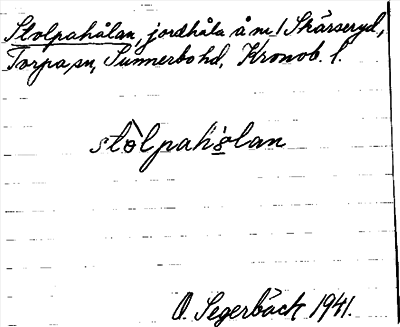 Stolpahålan, jordhåla å nr 1 Skärseryd,
Torpa sn, Sunnerbo hd, Kronob. l.
stòlpahò̱lan
O. Segerbäck 1941.